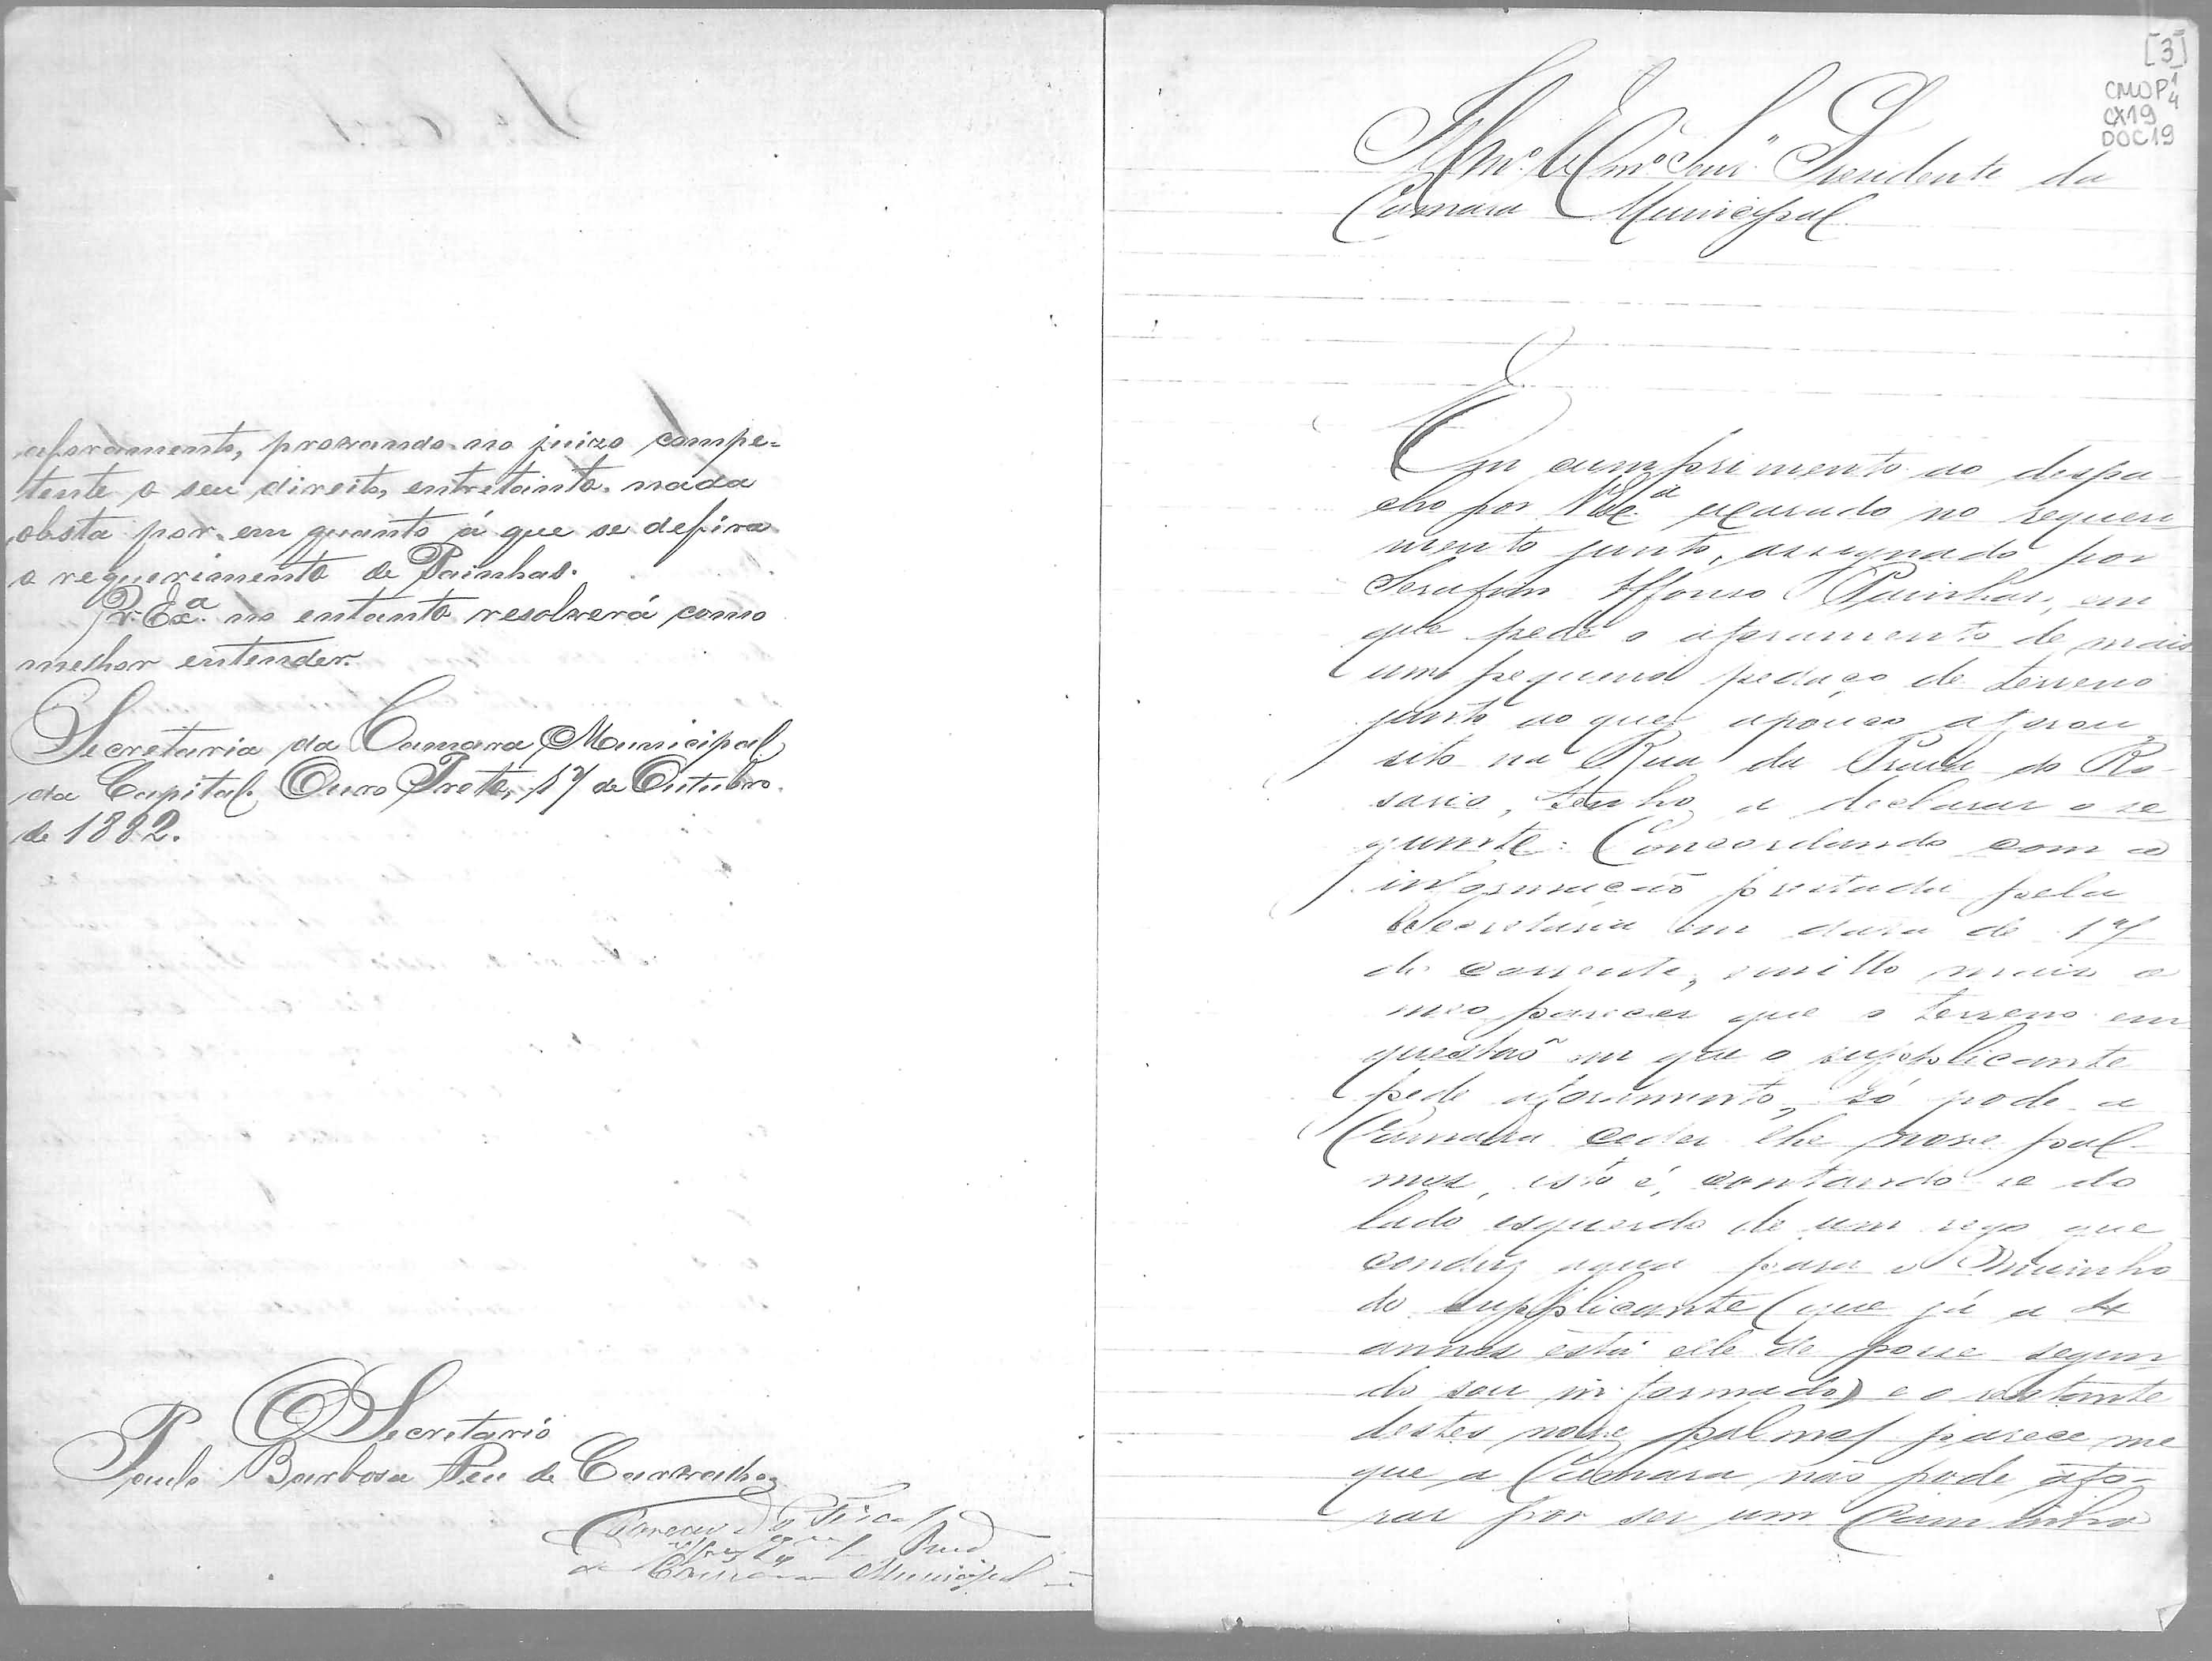 aforamento, provando no juizo compe=
tente o seu direito, entretanto nada
obsta por em quanto á que se defira
o requerimento de Painhas.
V. Exª no entanto resolverá como
melhor entender.
Secretaria da Camara Municipal
da Capital. Ouro Preto, 17 de Outubro
de 1882.
O Secretario
Paulo Barbosa Peu de Carvalho
Parecer do Fiscal
da Camara Municipal
[3]
CMOP 1/4
CX19
DOC19
Illmo. Exmo. Senr. Presidente da
Camara Municipal
Em cumprimento ao despa-
cho por V Exª exarado no requeri
mento junto, assignado por
Serafim Affonso Painhas, em
que pede o aforamento de mais
um pequeno pedaço de terreno
junto ao que apouco aforou,
sito na Rua da do Ro-
sario, tenho a declarar o se
guinte: Concordando com a
informação prestada pela
Secretaria em data de 17
do corrente, emitto mais o
meo parecer que o terreno em
questaõ em que o supplicante
pede aforamento, só pode a
Camara ceder lhe nove pal-
mos, isto é, contando se do
lado esquerdo de um rego que
conduz agua para o Muinho
do supplicante (que já a 4
annos está elle de posse segun
do sou informado) e o restante
destes nove palmos parece me
que a Camara não pode afo-
rar por ser um Caminho